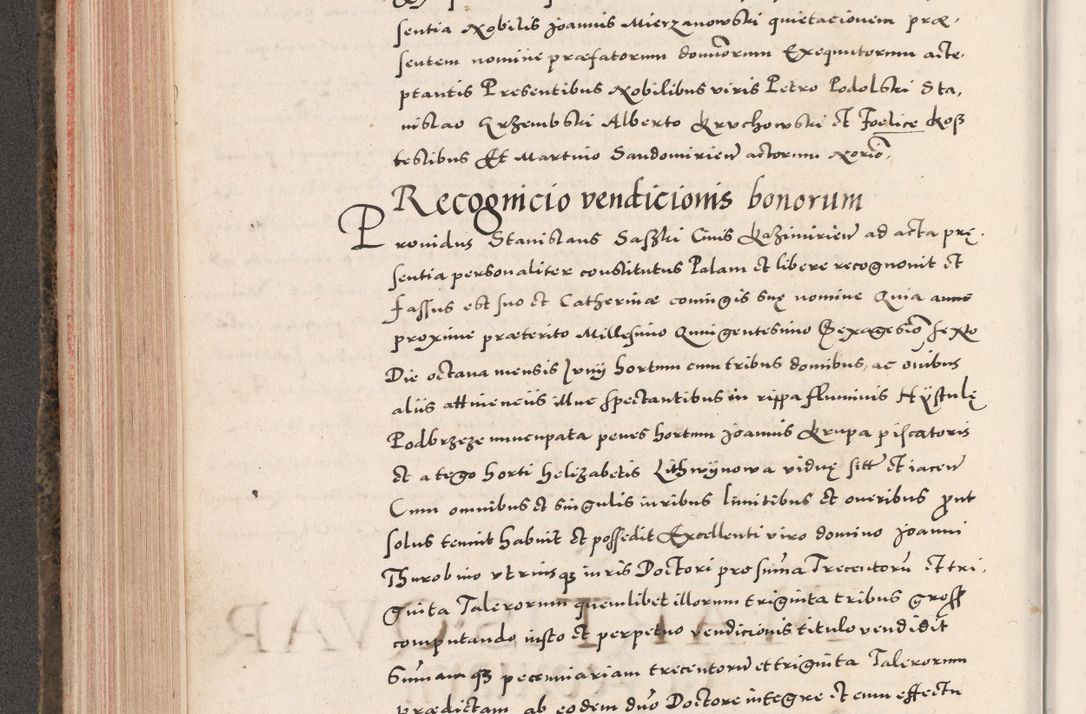 sentia Nobilis Joannis Mierzanowski quietacionem præ,
sentem nomine præfatorum dominorum Exequutorum acce,
ptantis Presentibus Nobilibus viris Petro Podolski Sta,
nislao Grzembski Alberto Kruchowski et Foelice Koß
testibus Et Martino Sandomirien actorum Norio,
Recognicio vendicionis bonorum
Prouidus Stanislaus Saszki Ciuis Kazimirien ad acta prę,
sentia personaliter constitutus Palam et libere recognouit et
fassus est suo et Catherinæ coniugis suę nomine Quia anno
proxime præterito Millesimo Quingentesimo Sexagesimo sexto
Die octaua mensis Junij hortum cum tribus domibus, ac omibus
aliis attinenciis illuc spectantibus in rippa fluminis Hÿstulę
Podbrzeze nuncupata penes hortum Joannis Krupa piscatoris
et a tego horti Helizabetis Lithwÿnowa viduę sitt et iacen
Cum omnibus et singulis iuribus limitibus et oneribus prout
solus tenuit habuit et possedit Excellenti viro domino Joanni
Thurobino vtriusq iuris Doctori pro summa Trecentorum et tri,
ginta Talerorum quemlibet illorum triginta tribus gross
computando iusto et perpetuo vendicionis titulo vendidit
Summamq pecuniariam trecentorum et triginta Talerorum
prædictam ab eodem duo Doctore integre et cum effectu